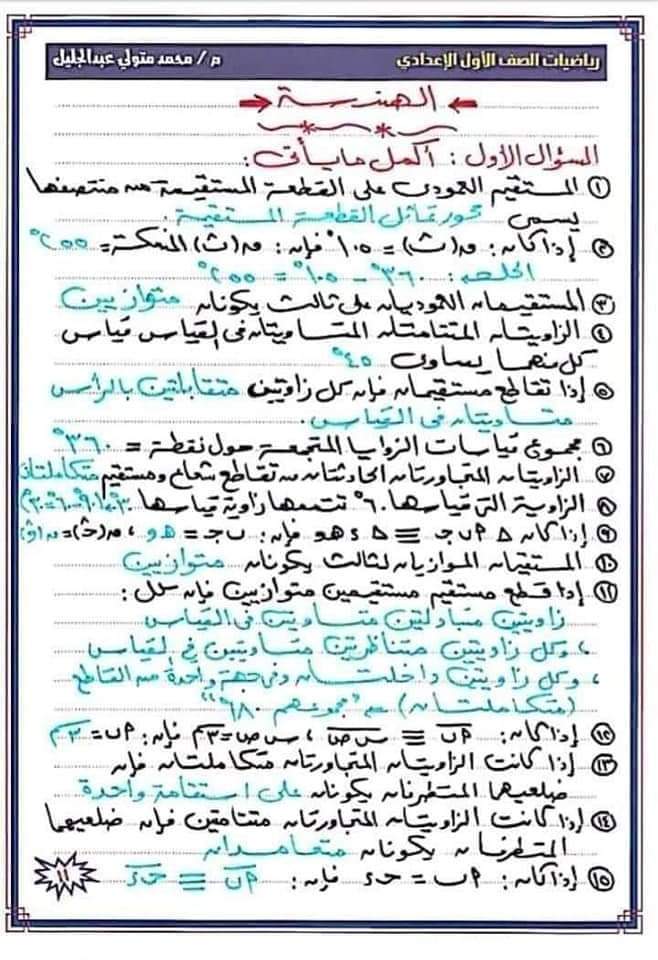 رياضيات الصف الأول الإعدادي
م / محمد متولي عبدالجليل
الهندسة
السؤال الأول : أكمل ما يأتى :
① المستقيم العمودى على القطعة المستقيمة من منتصفها
يسمى محور تماثل القطعة المستقيمة .
② إذا كان : ق (ث) = ١٠٥° فإن : ق (ث) المنعكسة = ٢٥٥°
الحل : ٣٦٠° - ١٠٥° = ٢٥٥°
③ المستقيمان العموديان على ثالث يكونان متوازيين
④ الزاويتان المتتامتان المتساويتان فى القياس قياس
كل منهما يساوى ٤٥°
⑤ إذا تقاطع مستقيمان فإن كل زاويتين متقابلتين بالرأس
متساويتان فى القياس .
⑥ مجموع قياسات الزوايا المتجمعة حول نقطة = ٣٦٠°
⑦ الزاويتان المتجاورتان الحادثتان من تقاطع شعاع ومستقيم متكاملتان
⑧ الزاوية التى قياسها ٦٠° تتممها زاوية قياسها ٣٠° (٩٠-٦٠=٣٠)
⑨ إذا كان △ أ ب جـ ≡ △ د هـ و فإن : ب جـ = هـ و ،
⑩ المستقيمان الموازيان لثالث يكونان متوازيين
⑪ إذا قطع مستقيم مستقيمين متوازيين فإن كل :
زاويتين متبادلتين متساويتين فى القياس
، وكل زاويتين متناظرتين متساويتين فى القياس
، وكل زاويتين داخلتان وفى جهة واحدة من القاطع
(متكاملتان) مجموعهم ١٨٠°
⑫ إذا كان : أ ب ≡ س ص ، س ص = ٣سم فإن : أ ب = ٣سم
⑬ إذا كانت الزاويتان المتجاورتان متكاملتان فإن
ضلعيهما المتطرفان يكونان على استقامة واحدة
⑭ إذا كانت الزاويتان المتجاورتان متتامتين فإن ضلعيهما
المتطرفان يكونان متعامدان
⑮ إذا كان : أ ب = جـ د فإن : أ ب ≡ جـ د
١١